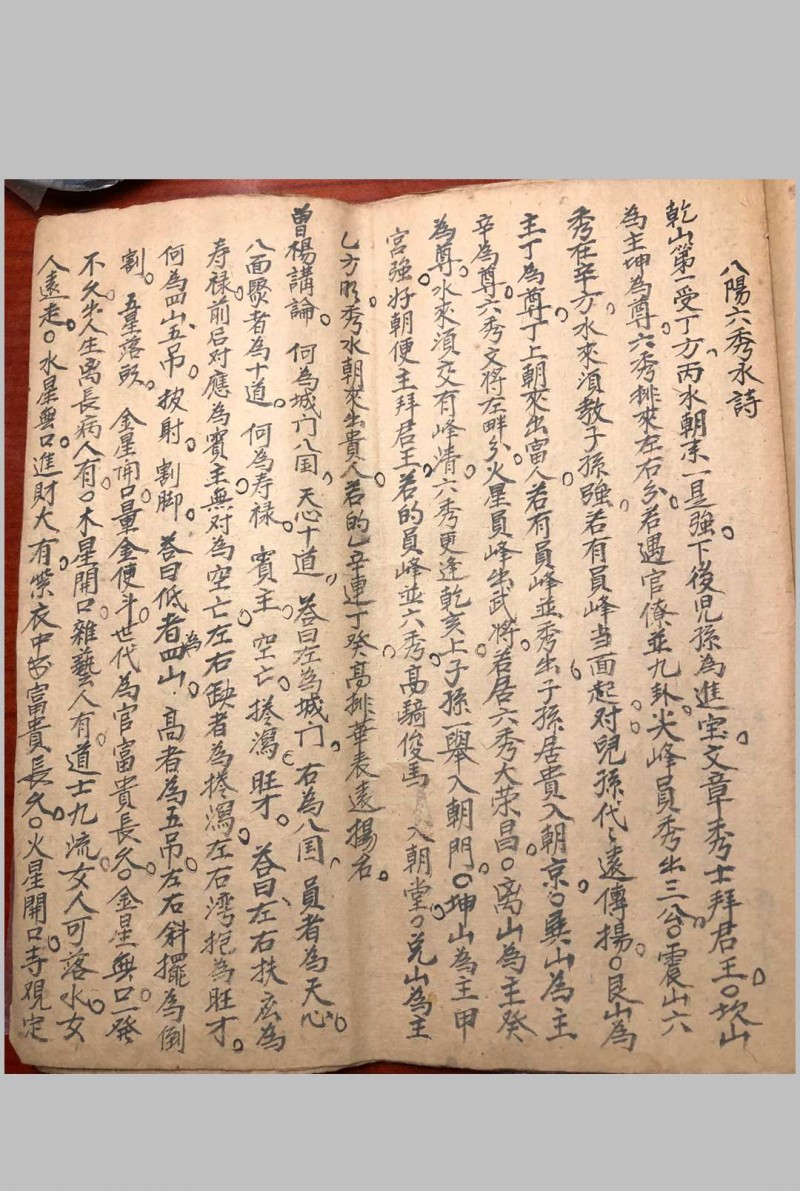 八陽六秀水詩
乾山第一受丁方丙水朝來一是強。下後児孫為進宝文章秀士拜君王。坎山
為主坤為尊。六秀排來左右分若遇官僚並九卦尖峰員秀出三公。震山六
秀在辛方水來須教子孫強若有員峰当面起对兒孫代〻遠傳揚。艮山為
主丁為尊丁上朝來出富人若有員峰並秀出子孫居貴入朝京。巽山為主
辛為尊六秀文將左畔分火星員峰出武將若居六秀大荣昌。离山為主癸
為尊水來須交有峰清六秀更逢乾亥上子孫一舉入朝門。坤山為主甲
宮強好朝便主拜君王若的員峰並六秀高騎俊馬入朝堂。兑山為主
乙方明秀水朝來出貴人若的乙辛連丁癸高排華表遠揚名。
曾楊講論。何為城门八国天心十道。答曰左為城门右為八国員者為天心
八面聚者為十道。何為寿禄。賓主。空亡。捲瀉旺才。答曰左右扶広為
寿禄。前后对應為賓主。無对為空亡左右缺者為捲瀉。左右湾抱為旺才。
何為四山五吊。披射割脚。答曰低者為四山。高者為五吊左右斜擺為倒
割。五星落頭。金星開口量金使斗。世代為官富貴長久。金星無口一發
不久出人生离長病人有。木星開口雜藝人有。道士九流。女人可落水女
人遠走。水星無口進財大有。紫衣中出富貴長久。火星開口寺观定